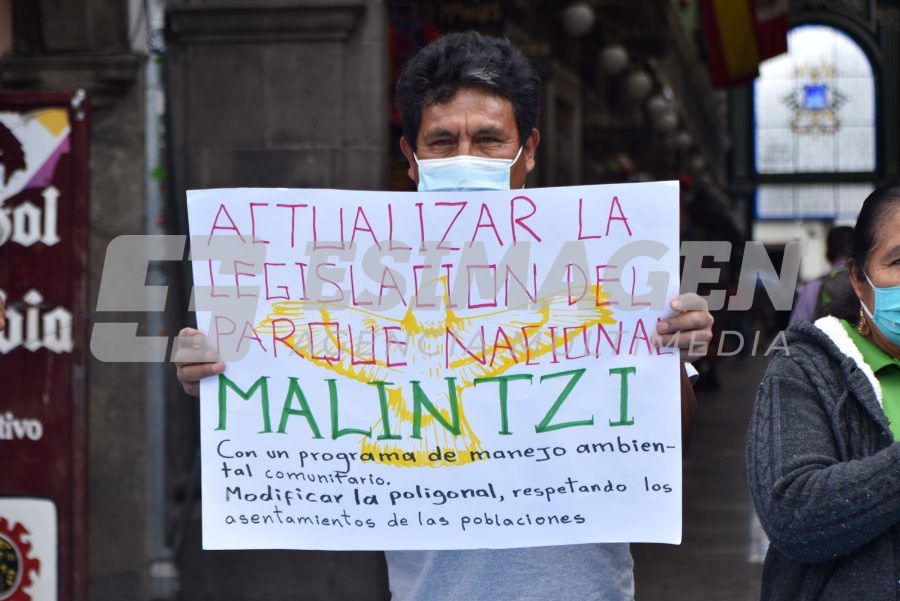 ACTUALIZAR LA
LEGISLACIÓN DEL
PARQUE NACIONAL
MALINTZI
Con un programa de manejo ambien-
tal comunitario.
Modificar la poligonal, respetando los
asentamientos de las poblaciones
ESIMAGEN
AGENCIA MULTIMEDIA